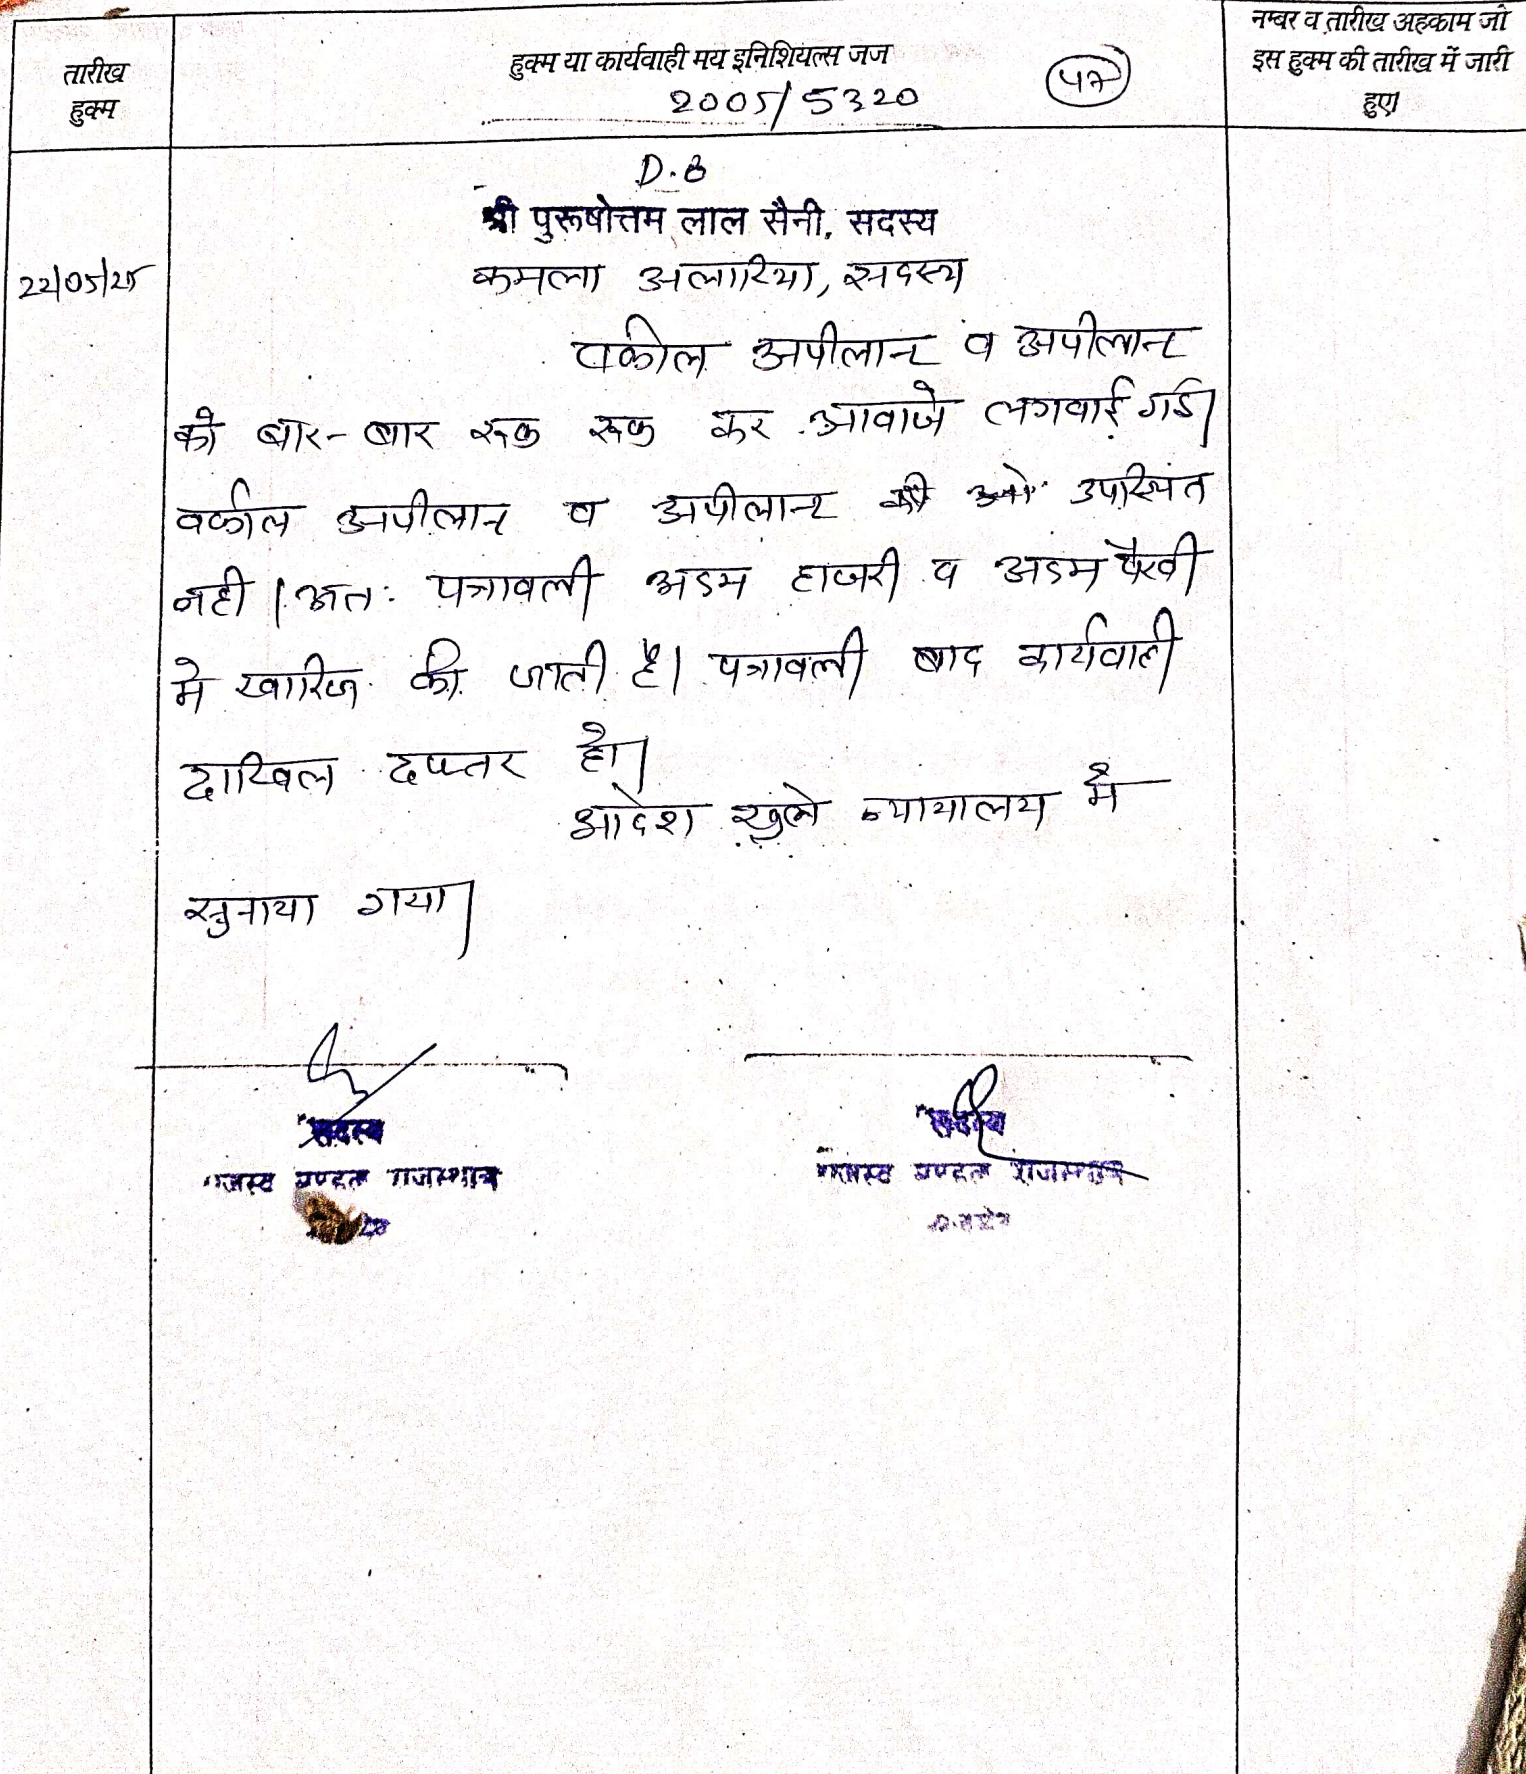 तारीख हुक्म
हुक्म या कार्यवाही मय इनिशियल्स जज
2005/5320
नम्बर व तारीख अहकाम जो
इस हुक्म की तारीख में जारी
हुए।
D.B
श्री पुरूषोत्तम लाल सैनी, सदस्य
22/05/25
कमला अलारिया, सदस्य
वकील अपीलान्ट व अपीलान्ट
को बार-बार रूक रूक कर आवाजे लगवाई गई।
वकील अपीलान्ट व अपीलान्ट उपस्थित
नही। अतः पत्रावली अदम हाजरी व अदम पैरवी
मे खारिज की जाती है। पत्रावली बाद कार्यवाही
दाखिल दफ्तर हो।
आदेश खुले न्यायालय मे
सुनाया गया।
सदस्य
मण्डल राजस्थान
सदस्य
मण्डल राजस्थान